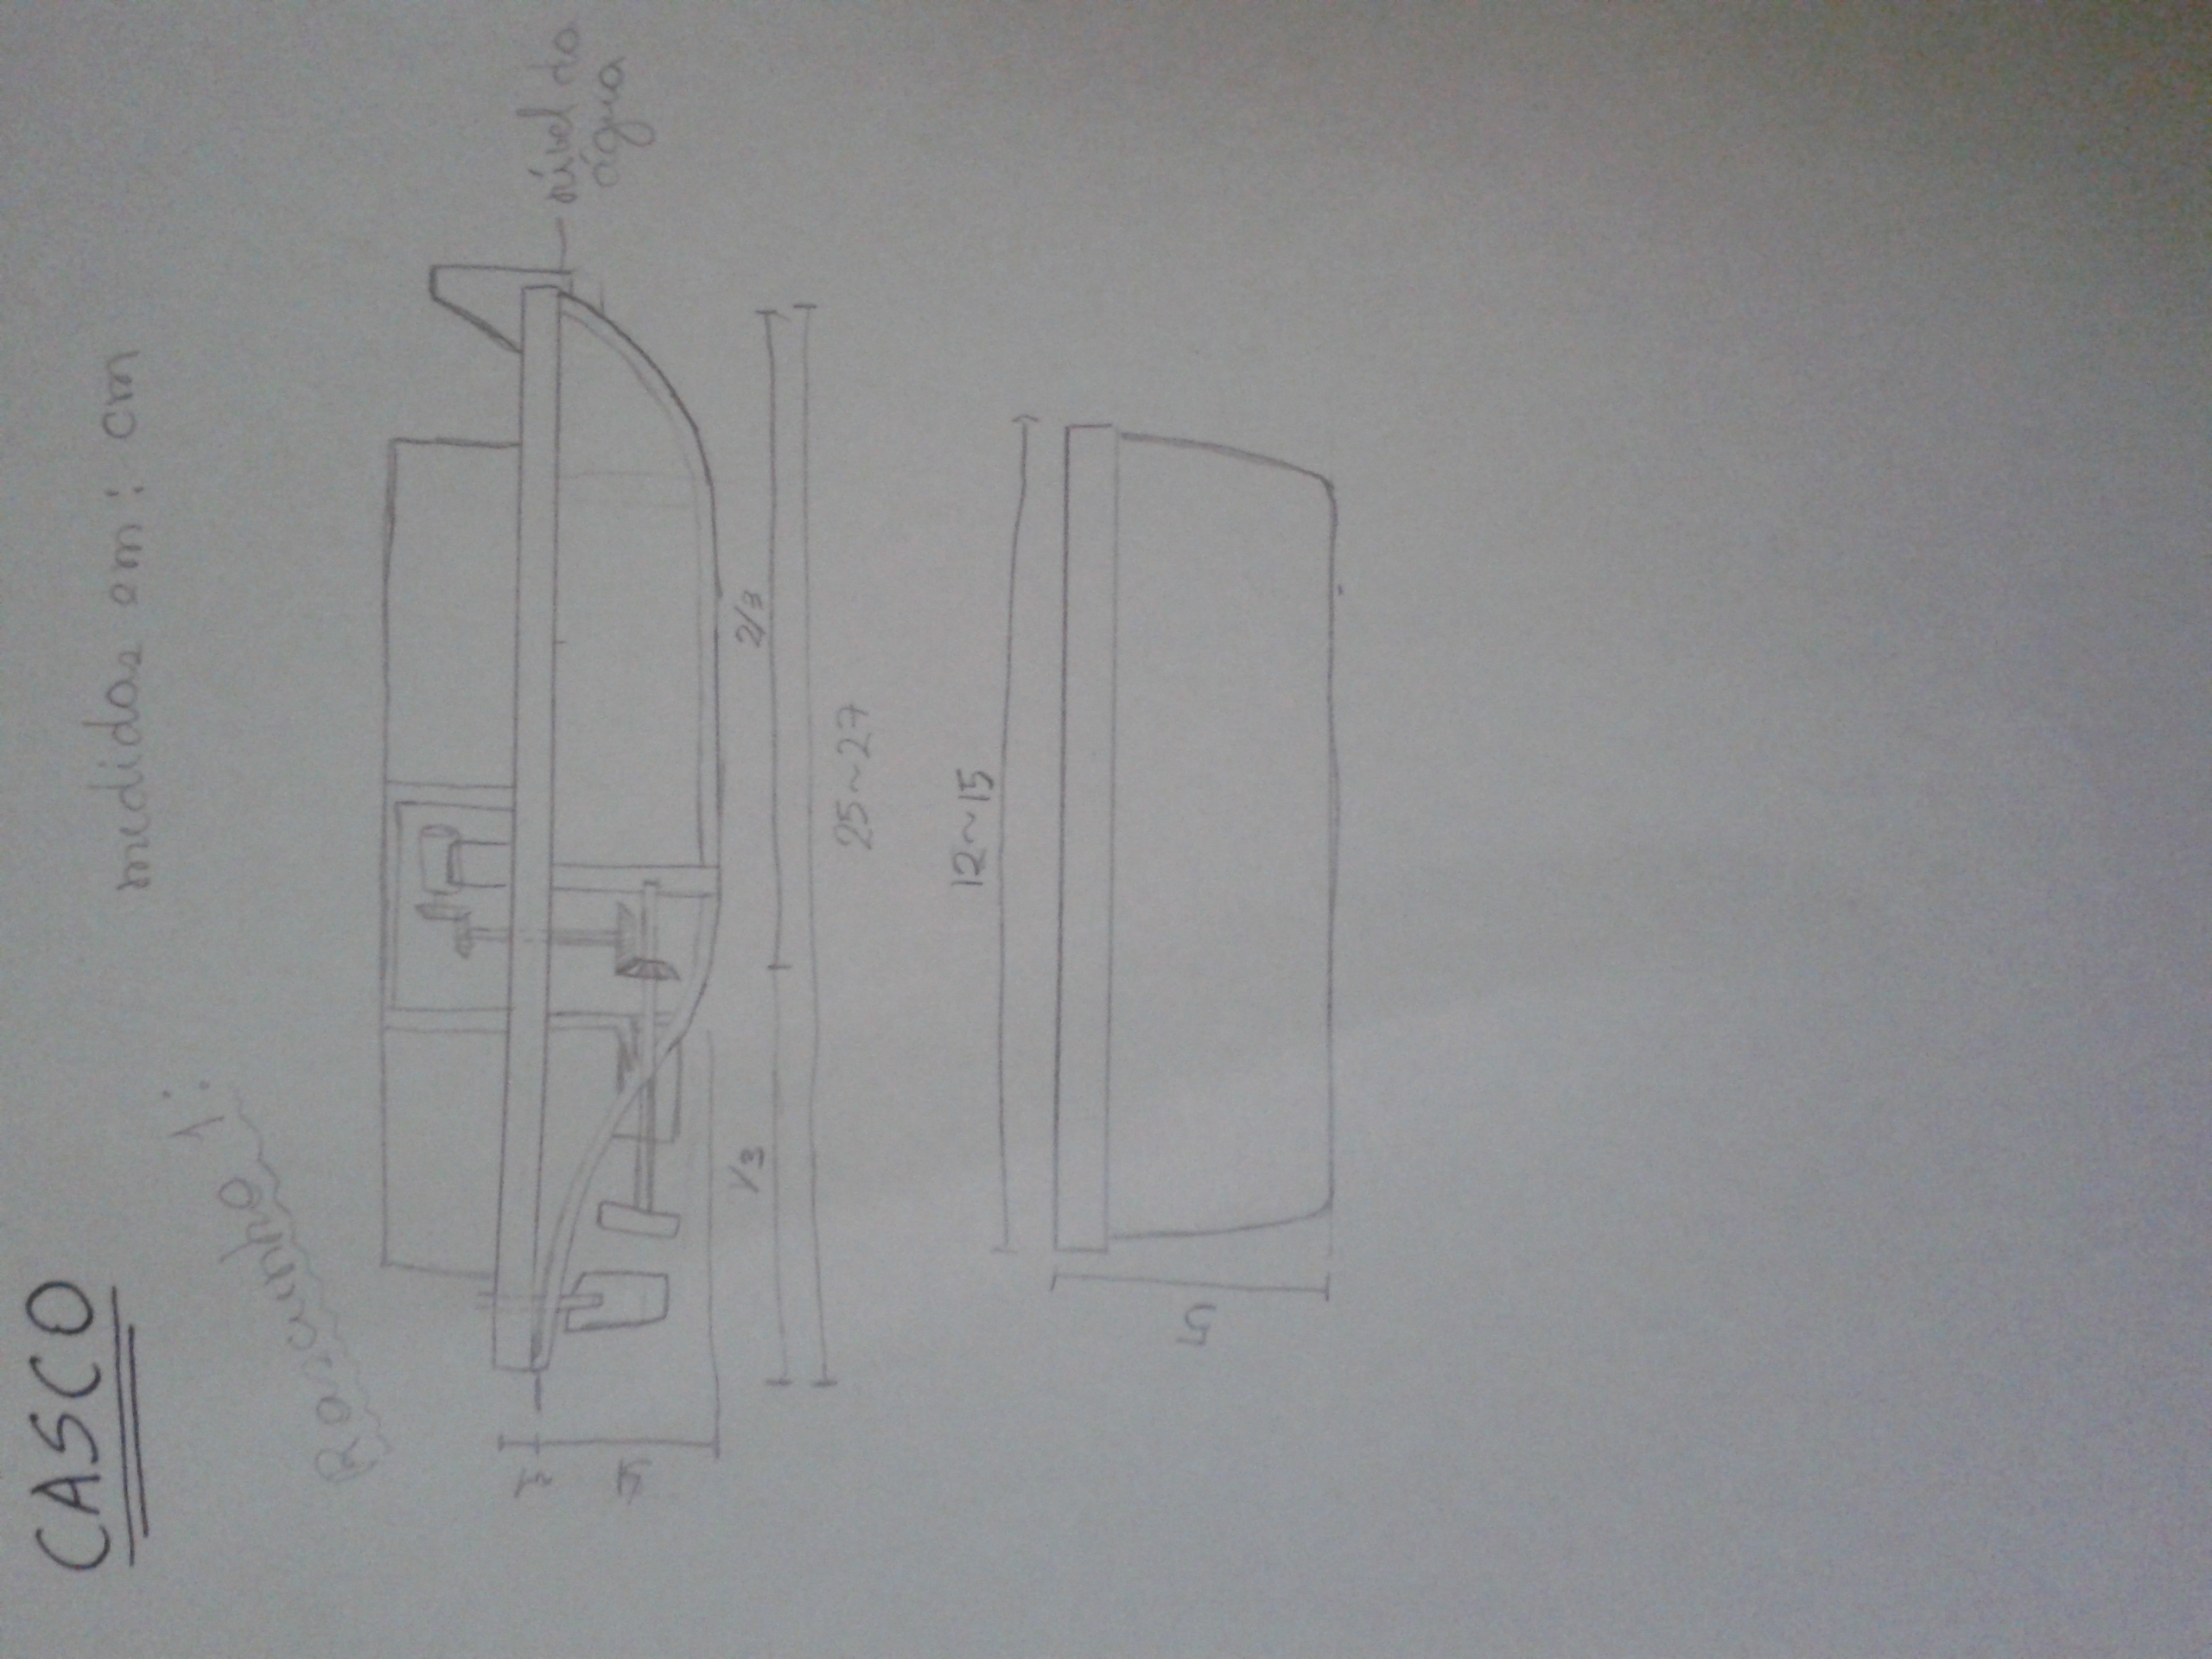 CASCO
medidas em: cm
Rascunho 1:
4
nível da
água
1/3
2/3
25~27
12~15
5